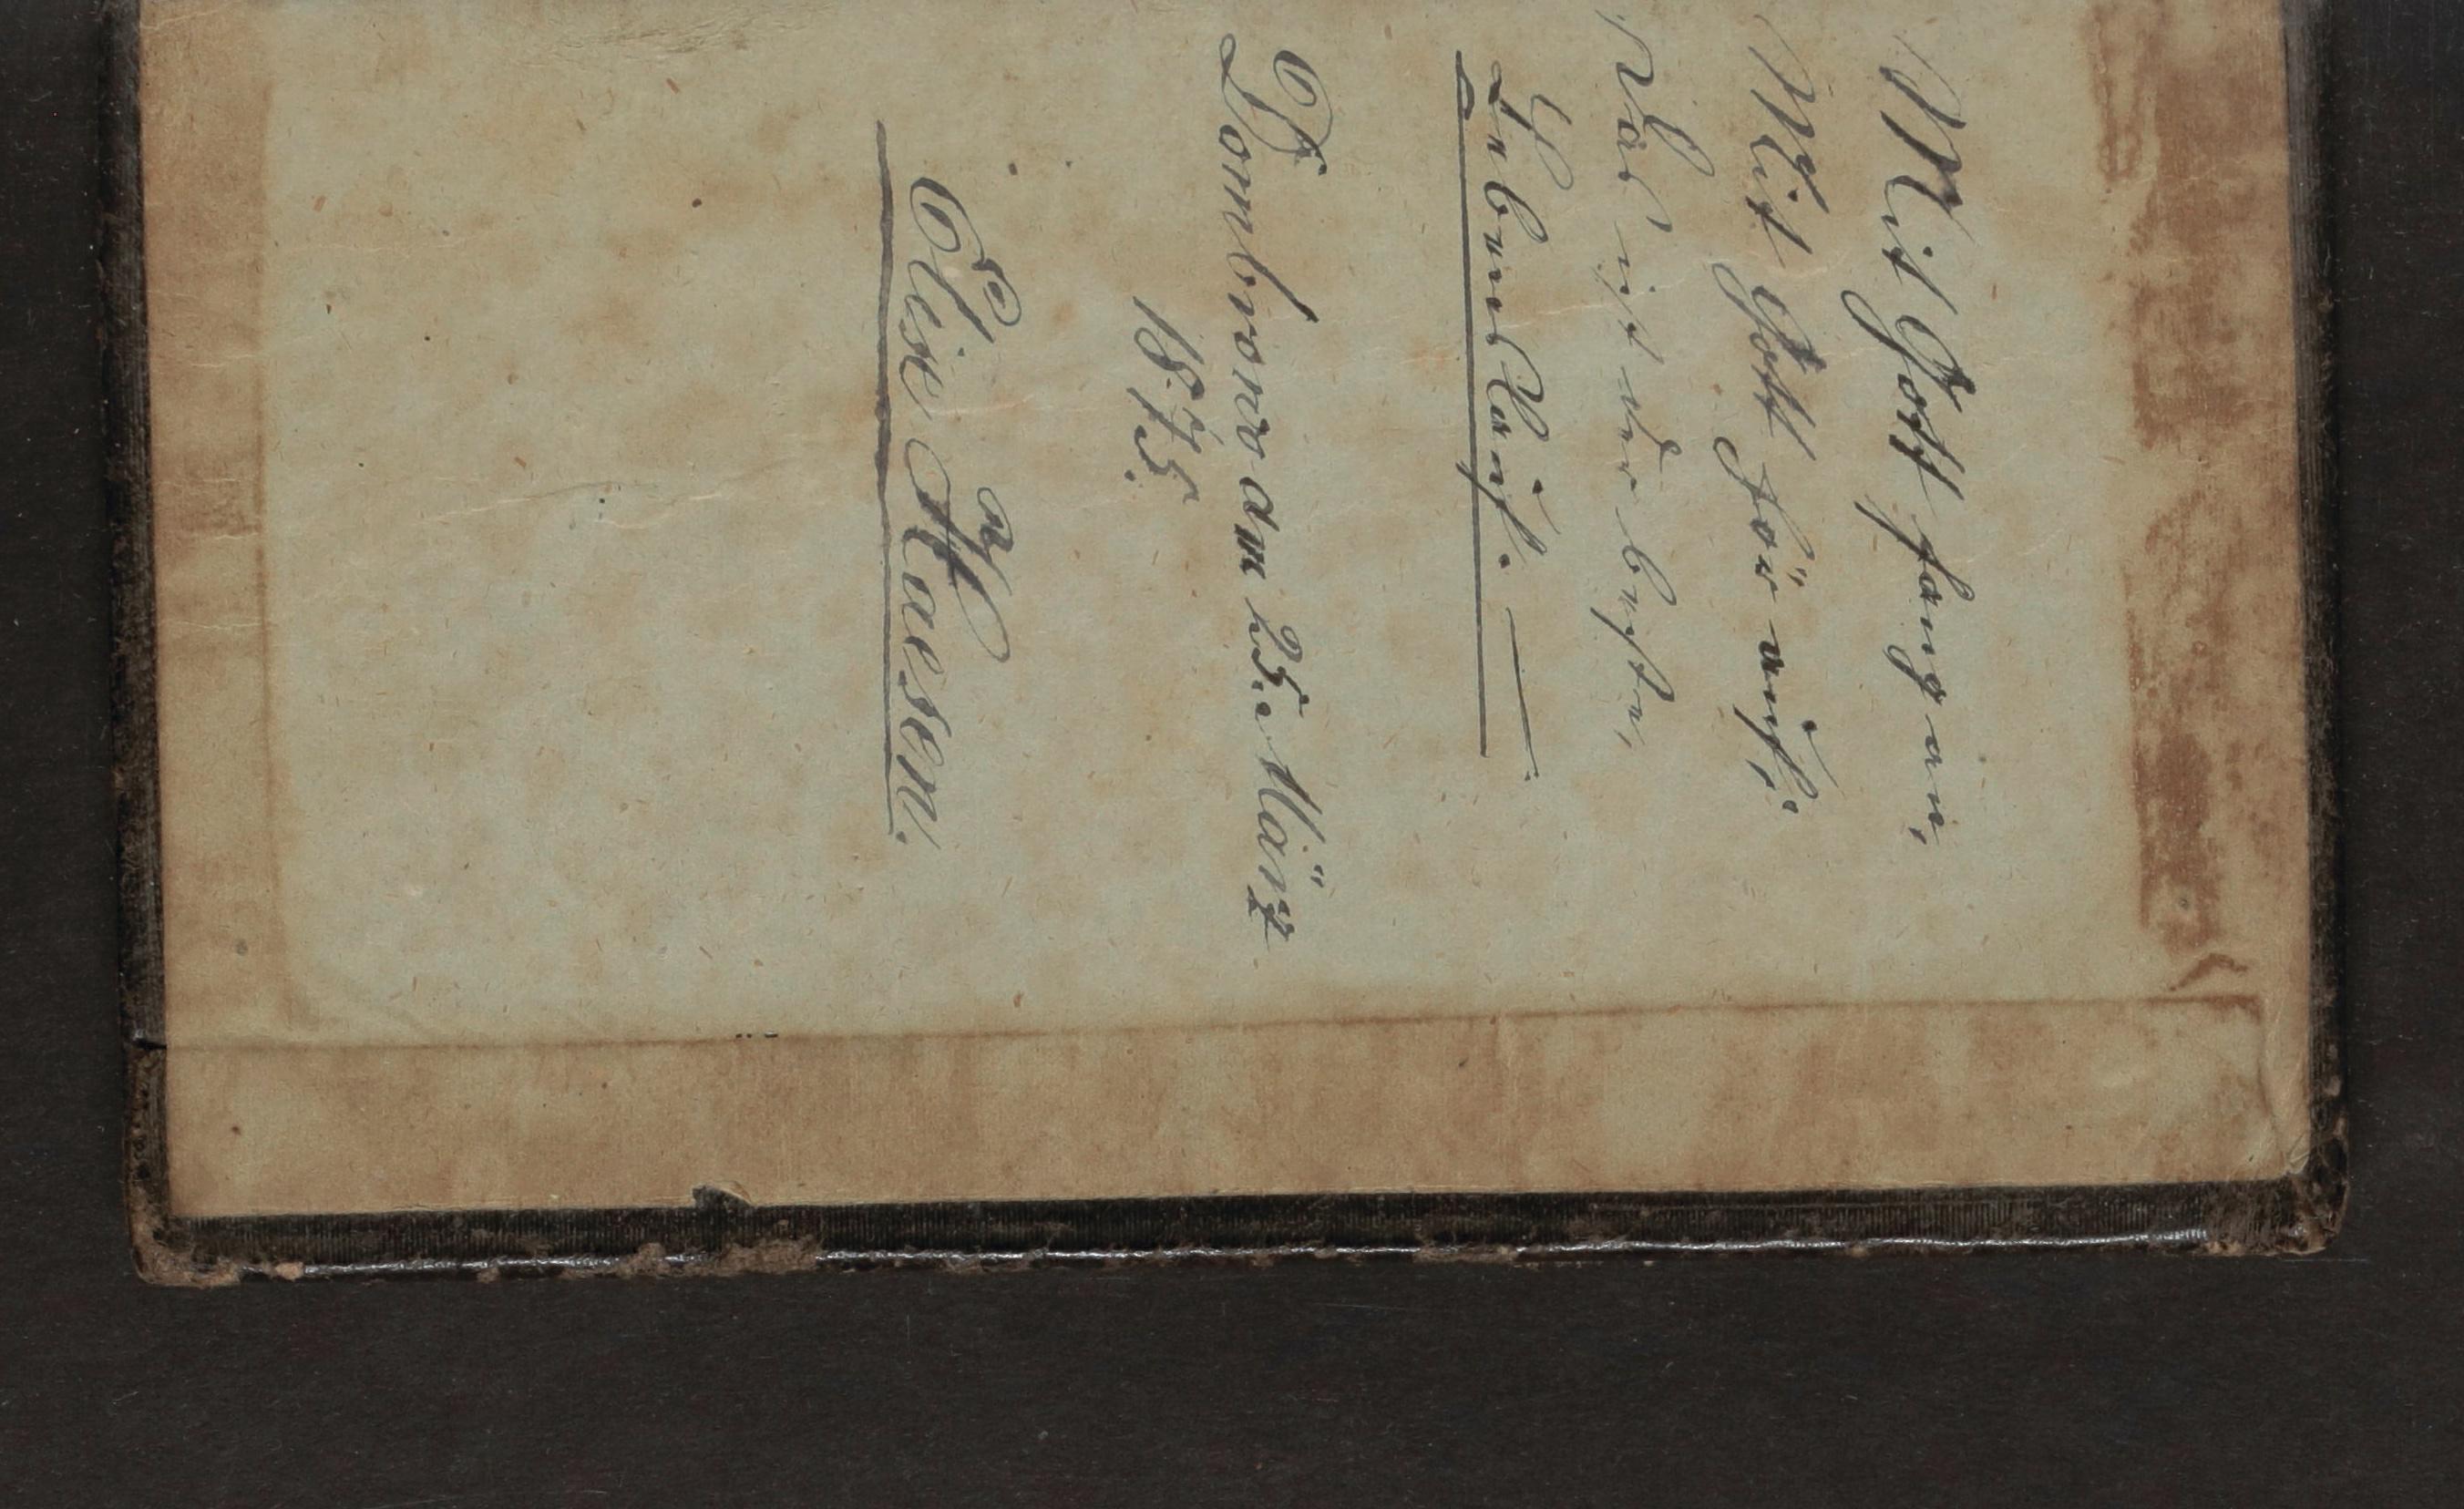 Mit Gott fang an,
Mit Gott hör auf,
Das ist der beste,
Lebens Lauf. —
Dombrowo dn 25. März
1875.
Elise Klaessen.